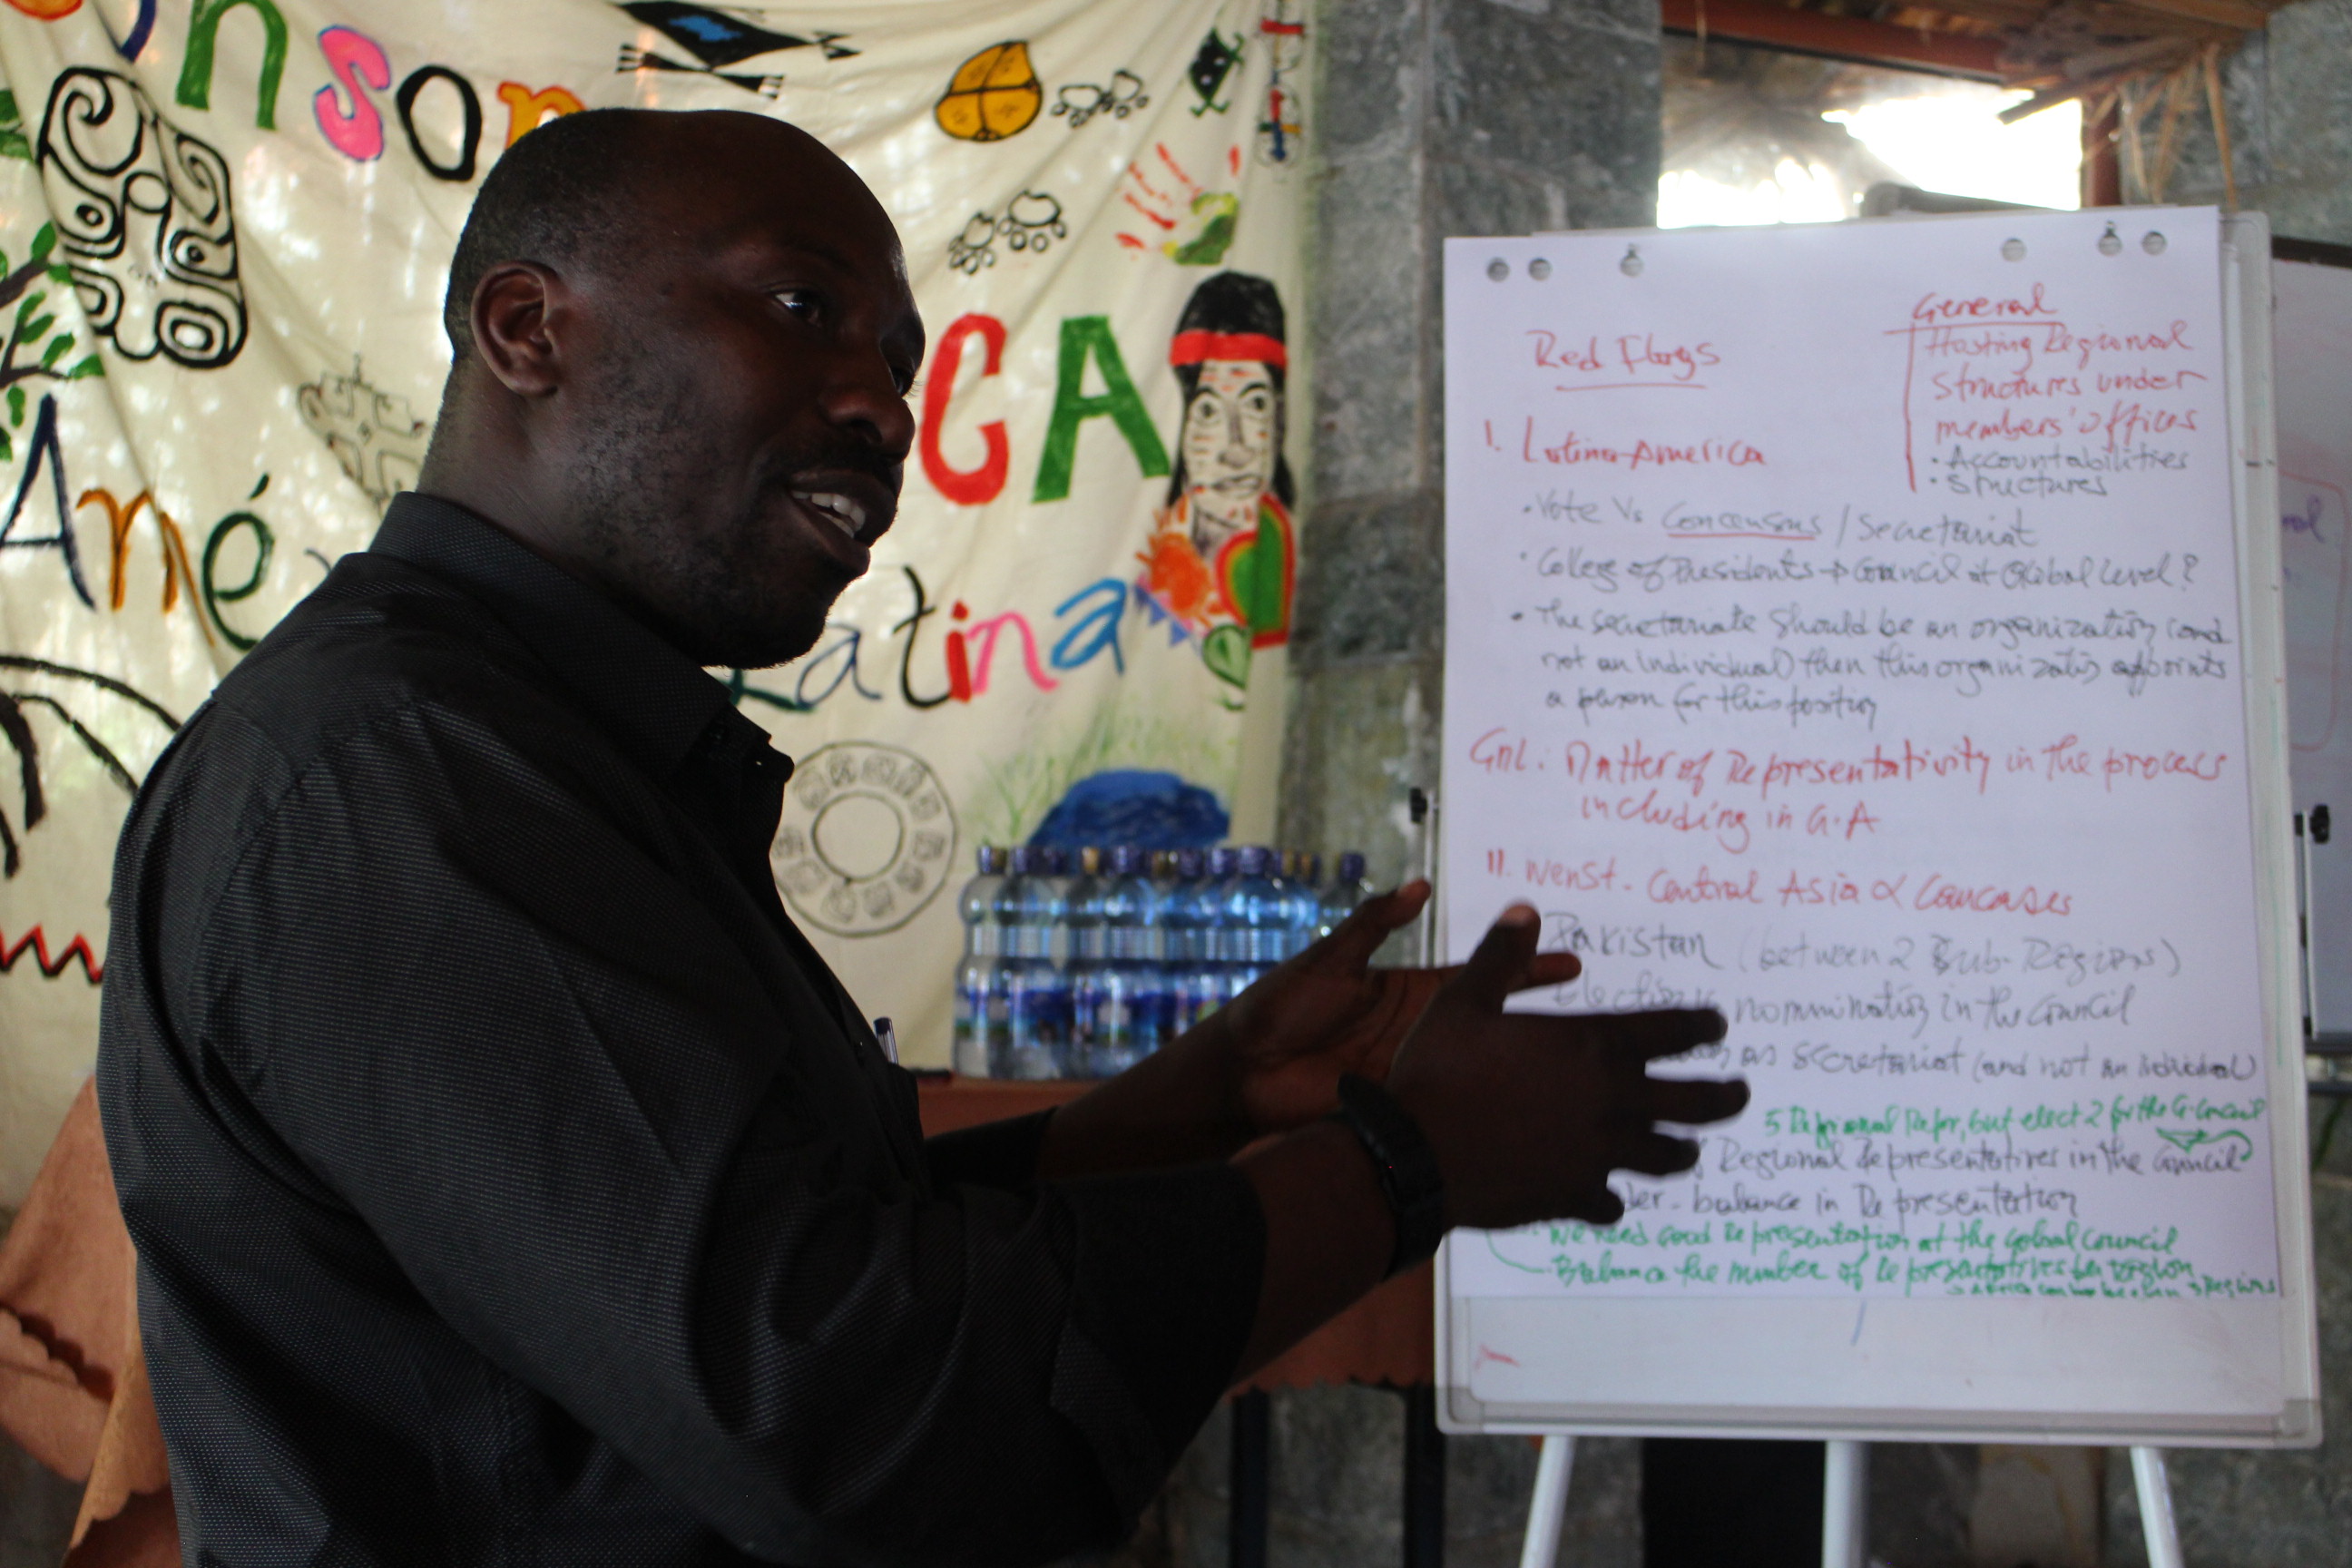 onsor
Amé
CA
Latina
General
Hosting Regional
Structures under
members' offices
• Accountabilities
• Structures
Red Flags
I. Latino-America
• Vote Vs Concensus / Secretariat
• College of Presidents → Council at Global Level?
• The secretariate should be an organization (and
not an individual) then this organization appoints
a person for this position
Gnl. Matter of Representativity in the process
including in G.A
II. Wenst. Central Asia & Caucases
Pakistan (between 2 Sub-Regions)
nomination in the Council
as Secretariat (and not an individual)
5 Regional Repr, but elect 2 for the G. Council
Regional Representatives in the Council
balance in Representation
We need good Representation at the global Council
Balance the number of Representatives per region
Regions